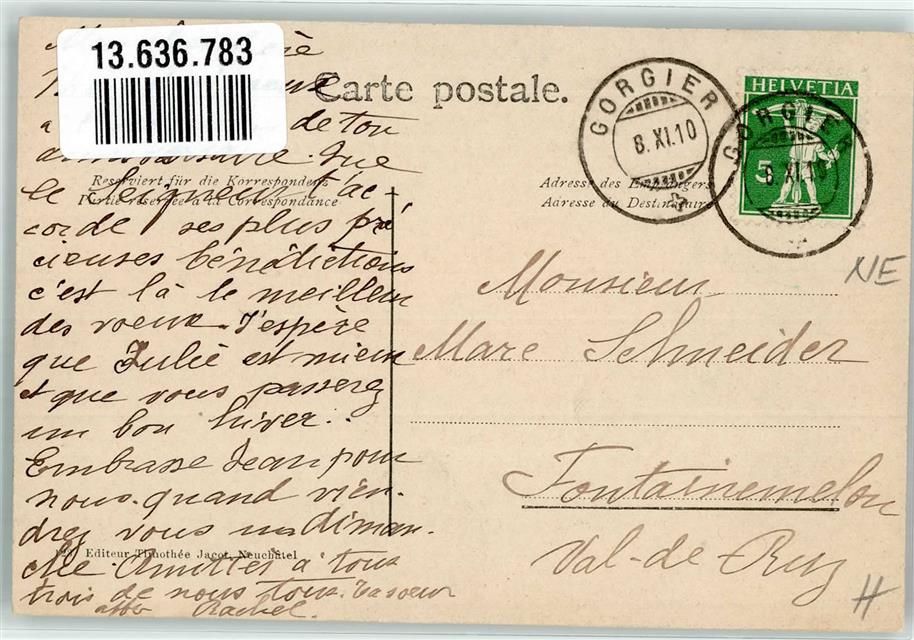 13.636.783
Carte postale.
de ton
anniversaire. Que
le Seigneur t'ac
corde ses plus pré
cieuses bénédictions
c'est là le meilleur
des voeux. J'espère
que Julie est mieux
et que vous passerez
un bon hiver.
Embrasse Jean pour
nous. quand vien-
drez vous un diman-
che. Amitiés à tous
trois de nous tous. Ta soeur
aff Rachel.
Reserviert für die Korrespondenz
Partie réservée à la Correspondance
Editeur Timothée Jacot, Neuchâtel
Adresse des Empfängers
Adresse du Destinataire
GORGIER
8.XI.10
HELVETIA
5
GORGIER
8.XI.10
NE
Monsieur
Marc Schneider
Fontainemelon
Val-de-Ruz
H